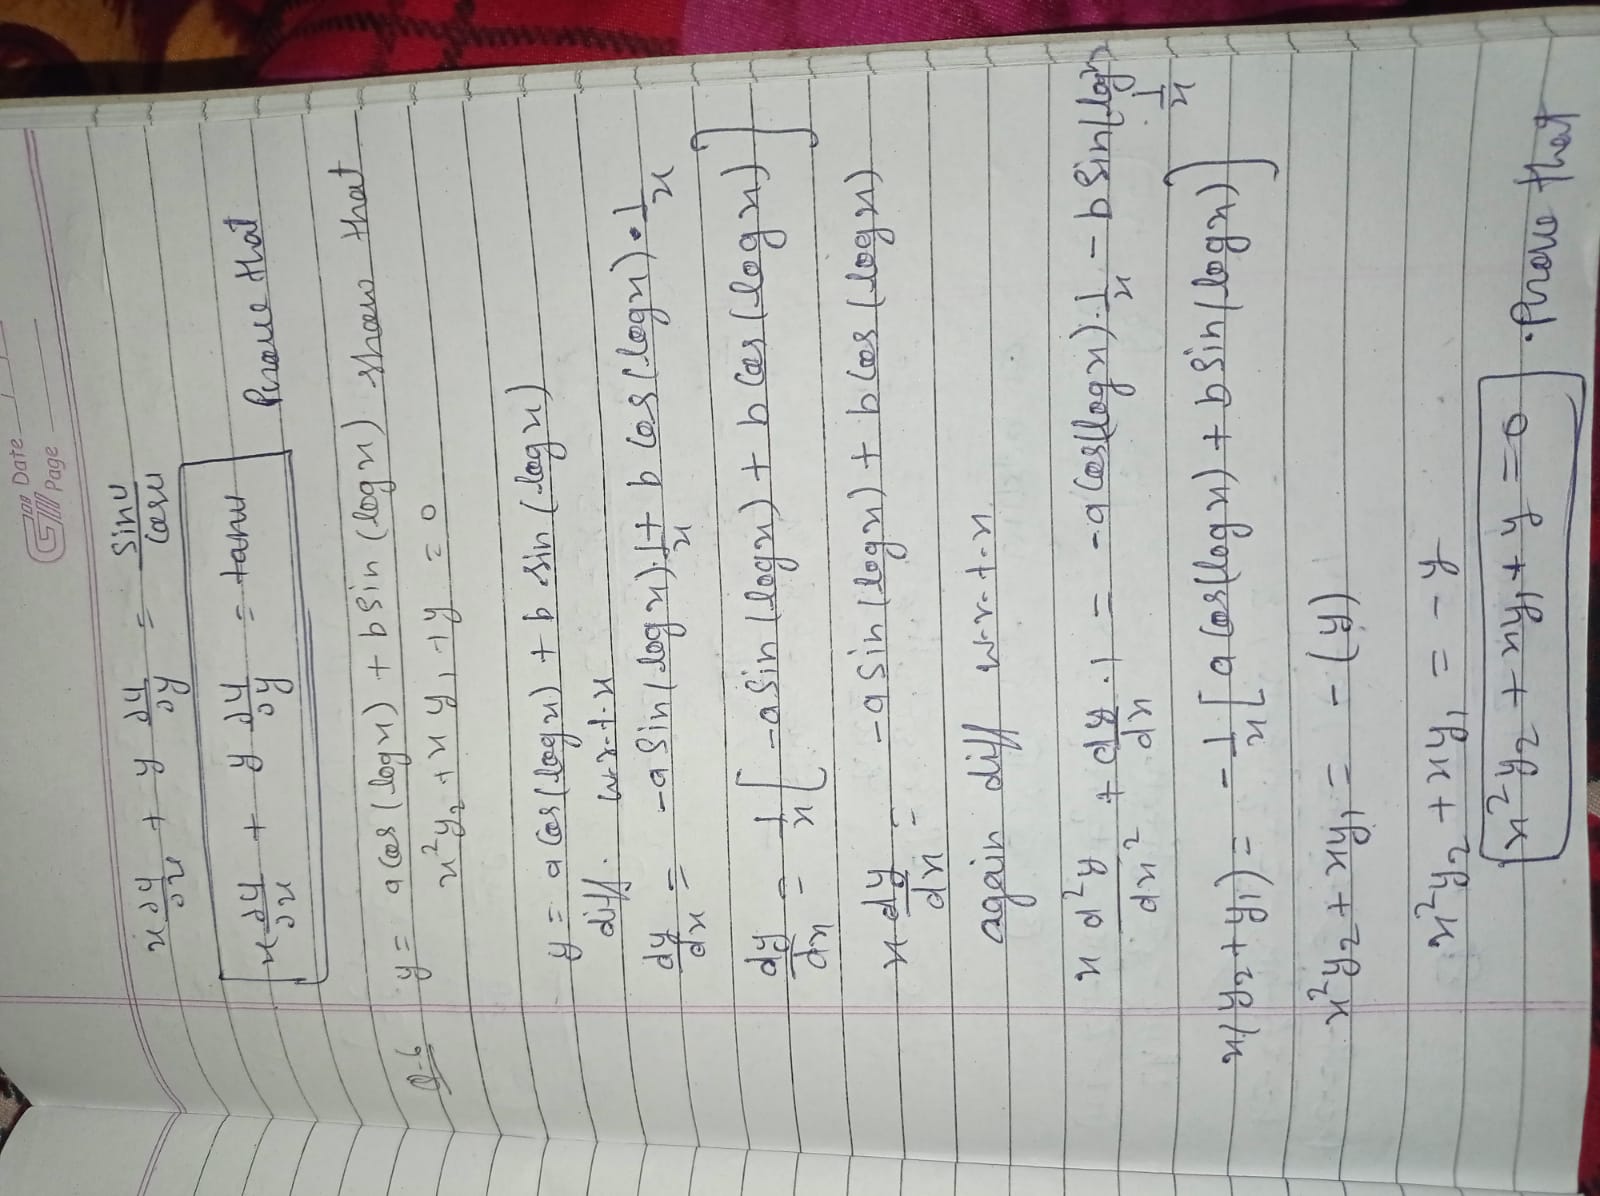 Date
Page
x ∂u/∂x + y ∂u/∂y = sinu/cosu
x ∂u/∂x + y ∂u/∂y = tanu Prove that
Q-6 y = a cos(logx) + b sin(logx) show that
x²y₂ + xy₁ + y = 0
y = a cos(logx) + b sin(logx)
diff. w.r.t.x
dy/dx = -a sin(logx).1/x + b cos(logx)•1/x
dy/dx = 1/x [-a sin(logx) + b cos(logx)]
x dy/dx = -a sin(logx) + b cos(logx)
again diff w.r.t.x
x d²y/dx² + dy/dx .1 = -a cos(logx).1/x - b sin(logx) 1/x
x(y₂+y₁) = -1/x [a cos(logx) + b sin(logx)]
x²y₂ + xy₁ = -(y)
x²y₂ + xy₁ = -y
x²y₂ + xy₁ + y = 0 . Prove that